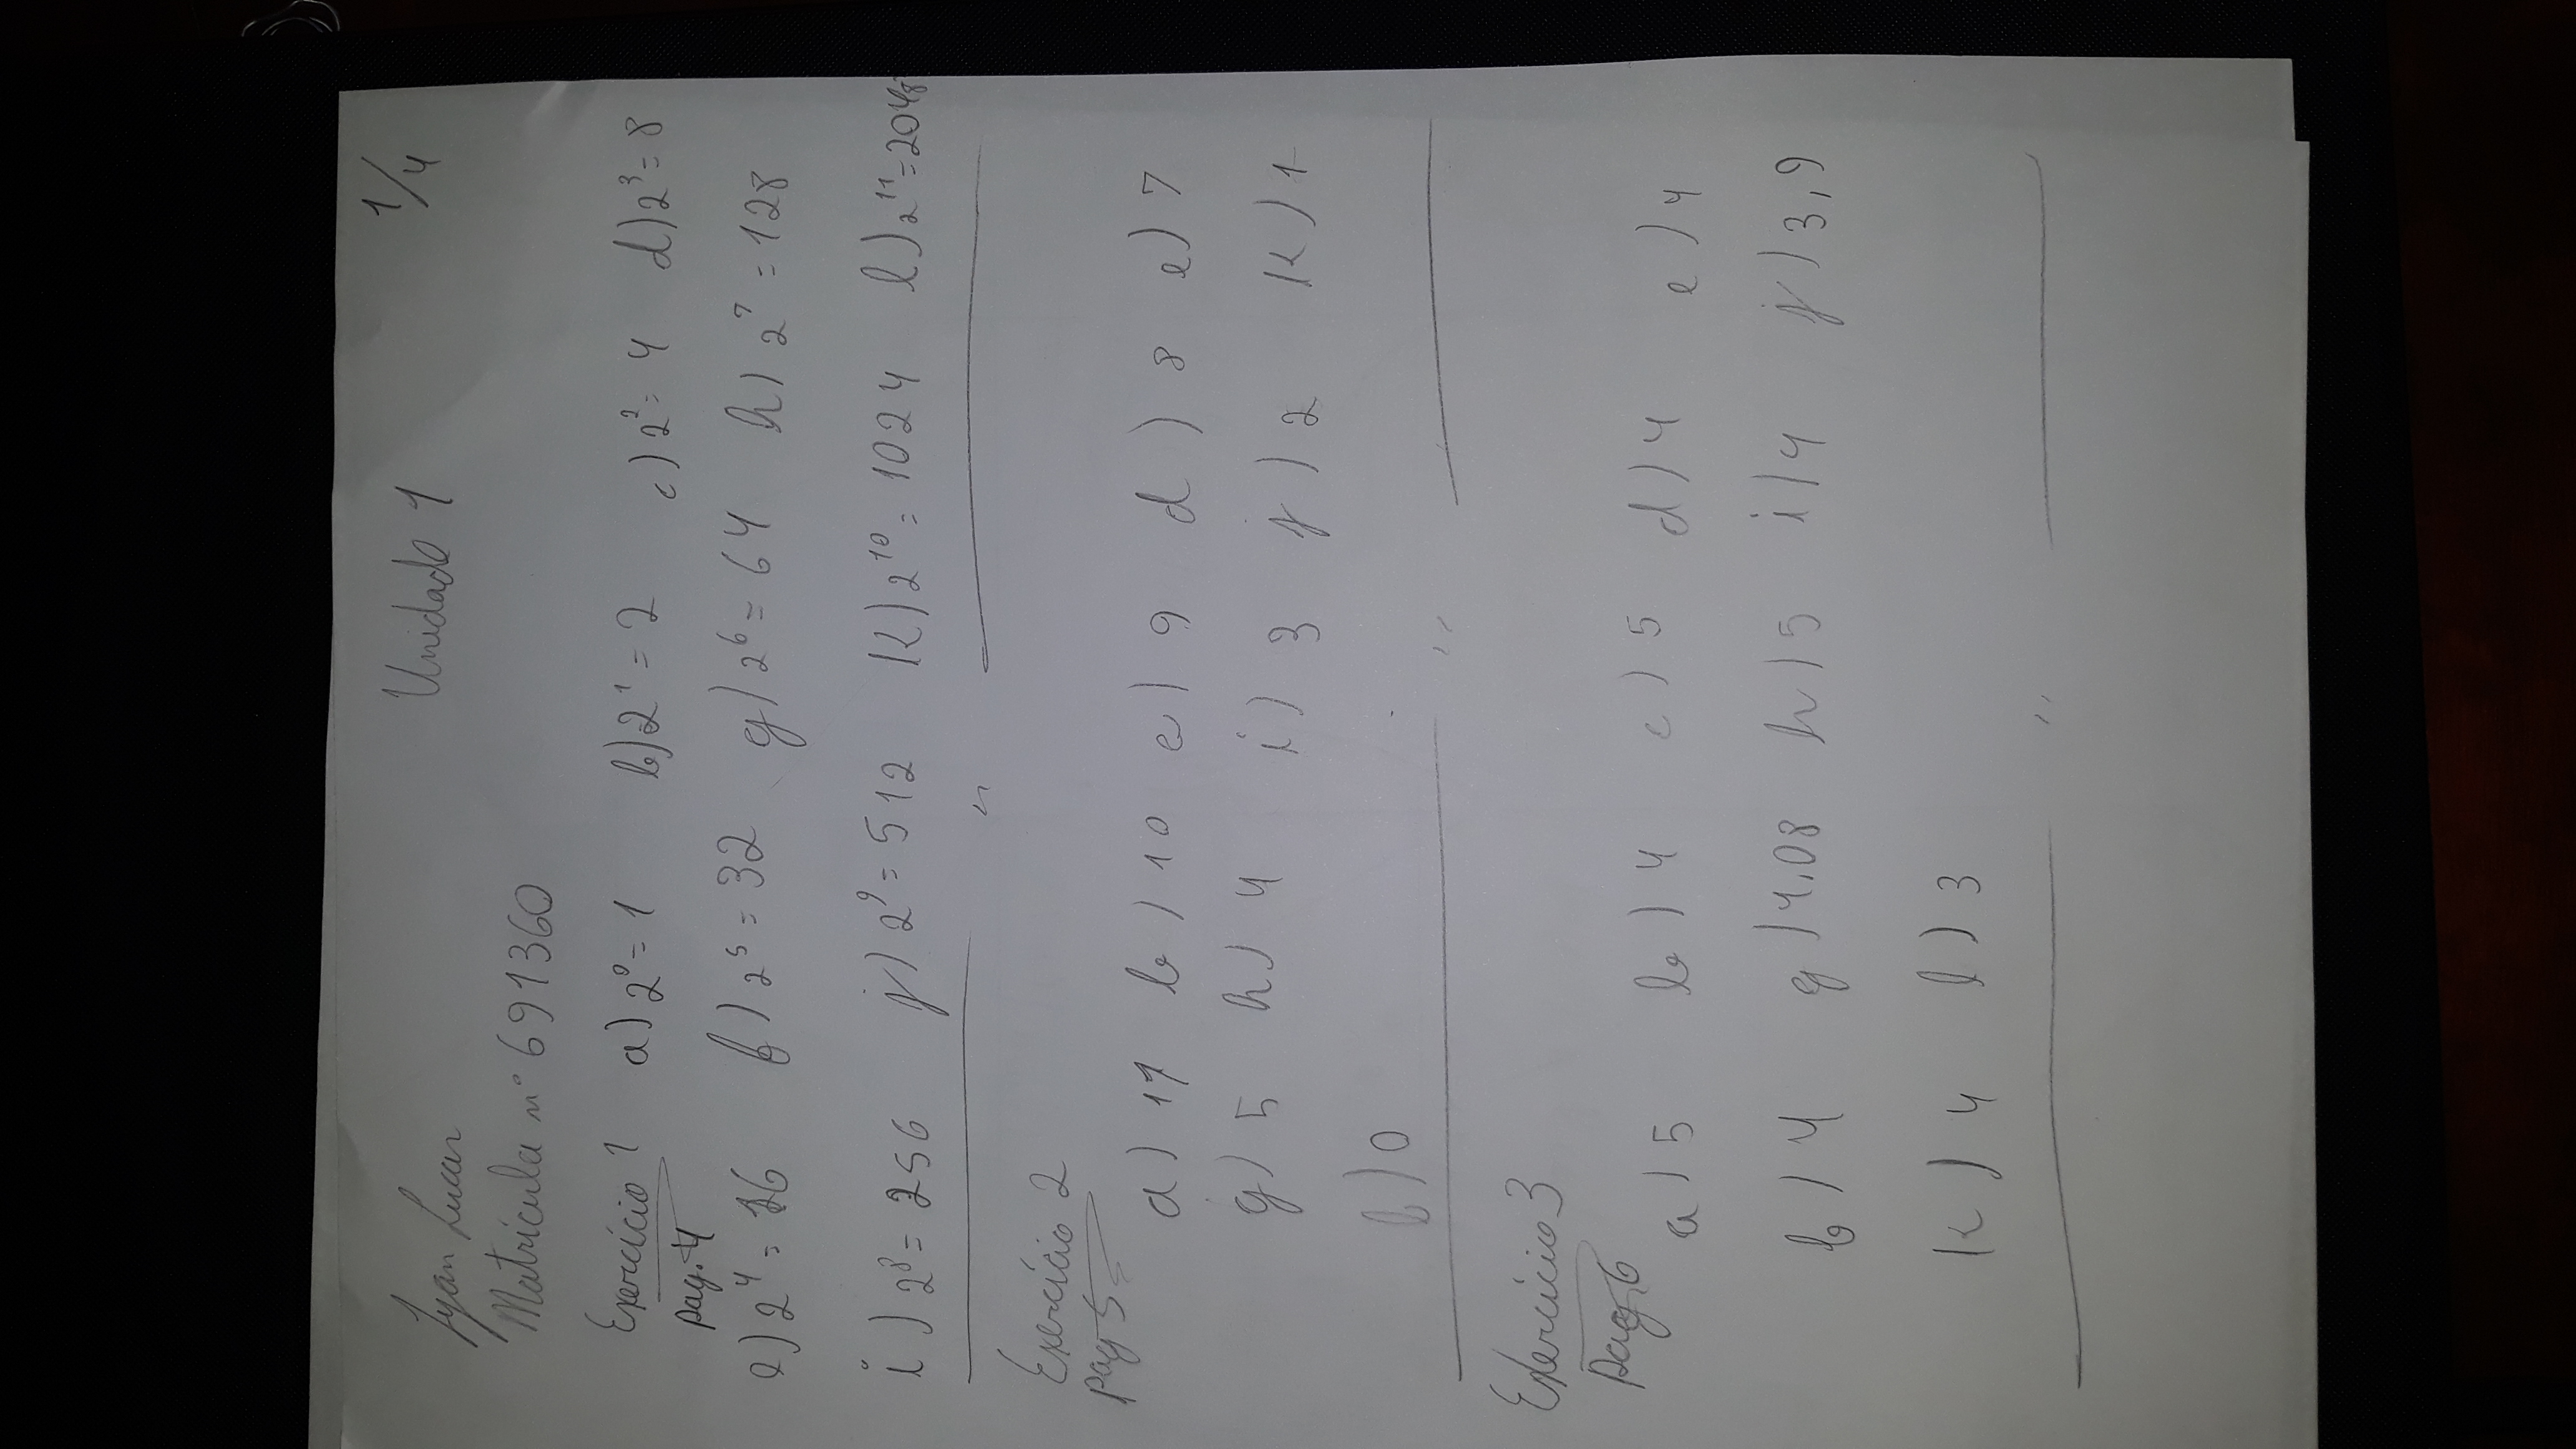 Unidade 1
1/4
Lyan Lucas
Matrícula nº 691360
Exercício 1 a) 2⁰ = 1 b) 2¹ = 2 c) 2² = 4 d) 2³ = 8
pag. 4
e) 2⁴ = 16 f) 2⁵ = 32 g) 2⁶ = 64 h) 2⁷ = 128
i) 2⁸ = 256 j) 2⁹ = 512 k) 2¹⁰ = 1024 l) 2¹¹ = 2048
Exercício 2
pag 5
a) 11 b) 10 c) 9 d) 8 e) 7
g) 5 h) 4 i) 3 j) 2 k) 1
l) 0
Exercício 3
pag. 6
a) 5 b) 4 c) 5 d) 4 e) 4
f) 4 g) 4,08 h) 5 i) 4 j) 3,9
k) 4 l) 3